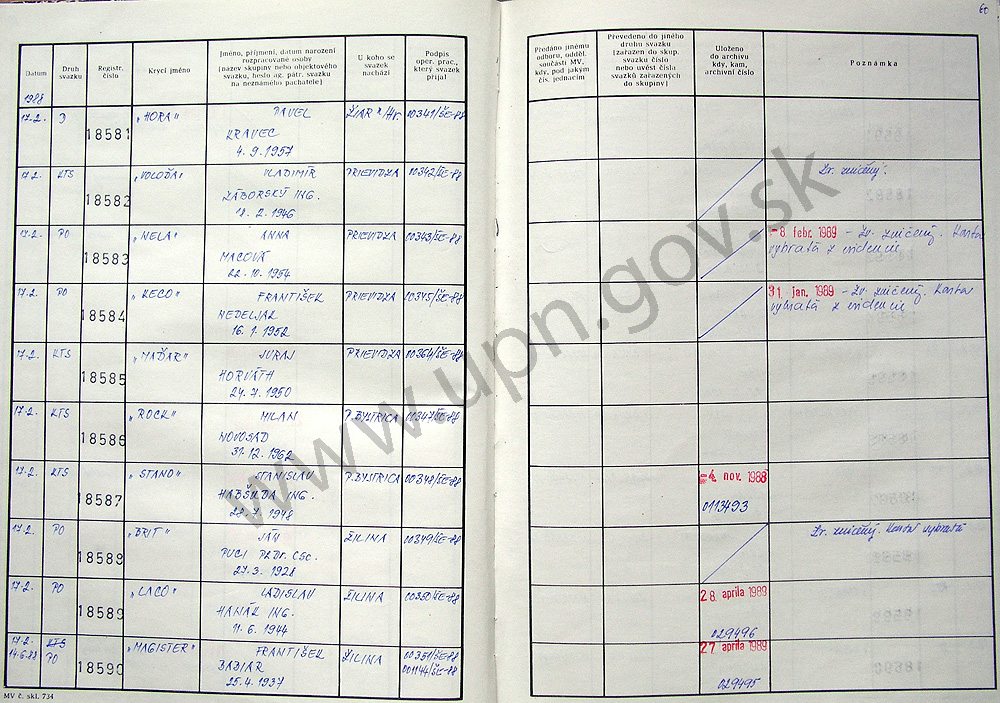 60
Datum
Druh svazku
Registr. číslo
Krycí jméno
Jméno, příjmení, datum narození
rozpracované osoby
[název skupiny nebo objektového
svazku, heslo ag. pátr. svazku
na neznámého pachatele]
U koho se
svazek
nachází
Podpis
oper. prac.,
který svazek
přijal
Předáno jinému
odboru, odděl.
součásti MV,
kdy, pod jakým
čís. jednacím
Převedeno do jiného
druhu svazku
[zařazen do skup.
svazku číslo
nebo uvést čísla
svazků zařazených
do skupiny]
Uloženo
do archivu
kdy, kam,
archivní číslo
Poznámka
1988
17.2. 18581 „HORA" PAVEL ŽIAR n/Hr. 00341/ŠE-88
KRAVEC
4.9.1957
17.2. KTS 18582 „VOLOĎA" VLADIMÍR PRIEVIDZA 00342/ŠE-88 Zv. zničený.
ZÁBORSKÝ ING.
18.2.1946
17.2. PO 18583 „NELA" ANNA PRIEVIDZA 00343/ŠE-88 -8. febr. 1989 - Zv. zničený. Karta
MACOVÁ vybratá z evidencie
22.10.1954
17.2. PO 18584 „KECO" FRANTIŠEK PRIEVIDZA 00345/ŠE-88 31. jan. 1989 - Zv. zničený. Karta
NEDELJAK vybratá z evidencie
16.1.1952
17.2. KTS 18585 „MAĎAR" JURAJ PRIEVIDZA 00364/ŠE-88
HORVÁTH
24.7.1950
17.2. KTS 18586 „ROCK" MILAN P.BYSTRICA 00347/ŠE-88
NOVOSAD
31.12.1962
17.2. KTS 18587 „STANO" STANISLAV P.BYSTRICA 00348/ŠE-88 -4. nov. 1988
HABŠUDA ING.
28.7.1948 0113493
17.2. PO 18588 „BRIT" JÁN ŽILINA 00349/ŠE-88 Zv. zničený. Karta vybratá
PUCI PhDr. CSc.
27.3.1928
17.2. PO 18589 „LACO" LADISLAV ŽILINA 00350/ŠE-88 28. apríla 1989
HANÁK ING.
11.6.1944 029496
17.2. KTS 18590 „MAGISTER" FRANTIŠEK ŽILINA 00351/ŠE-88 27. apríla 1989
14.6.88 PO BABIAR 001144/ŠE-88
25.4.1937 029495
MV č. skl. 734
www.upn.gov.sk